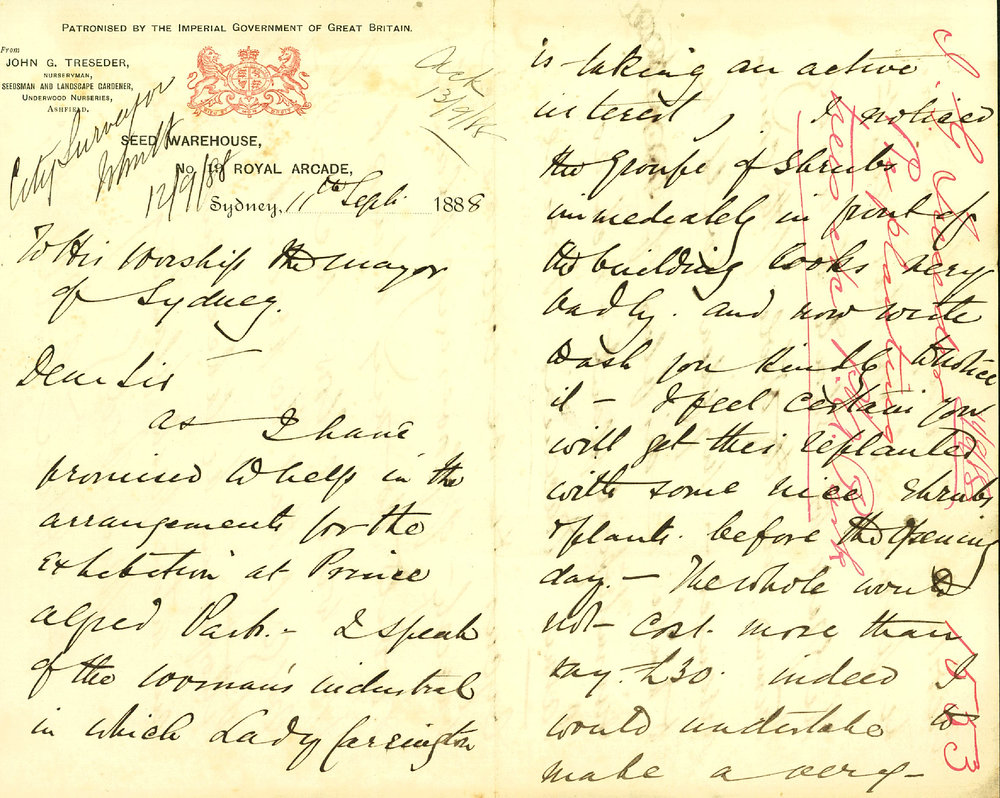 PATRONISED BY THE IMPERIAL GOVERNMENT OF GREAT BRITAIN.
From
JOHN G. TRESEDER,
NURSERYMAN,
SEEDSMAN AND LANDSCAPE GARDENER,
UNDERWOOD NURSERIES,
ASHFIELD.
Ack
13/9/88
City Surveyor
12/9/88
SEED WAREHOUSE,
No. 19 ROYAL ARCADE,
Sydney, 11th Sept. 1888
To His Worship the Mayor
of Sydney.
Dear Sir
As I have
promised to help in the
arrangements for the
Exhibition at Prince
Alfred Park. - I speak
of the woman's industral
in which Lady Carrington
is taking an active
interest, I noticed
the groupe of shrubs
immediately in front of
the building looks very
badly. and now write
to ask you kindly to notice
it - I feel certain you
will get this replanted
with some nice shrubs
& plants. before the opening
day - The whole would
not cost. more than
say. £30. indeed I
would undertake to
make a very -
J. G. Treseder
re planting
1553